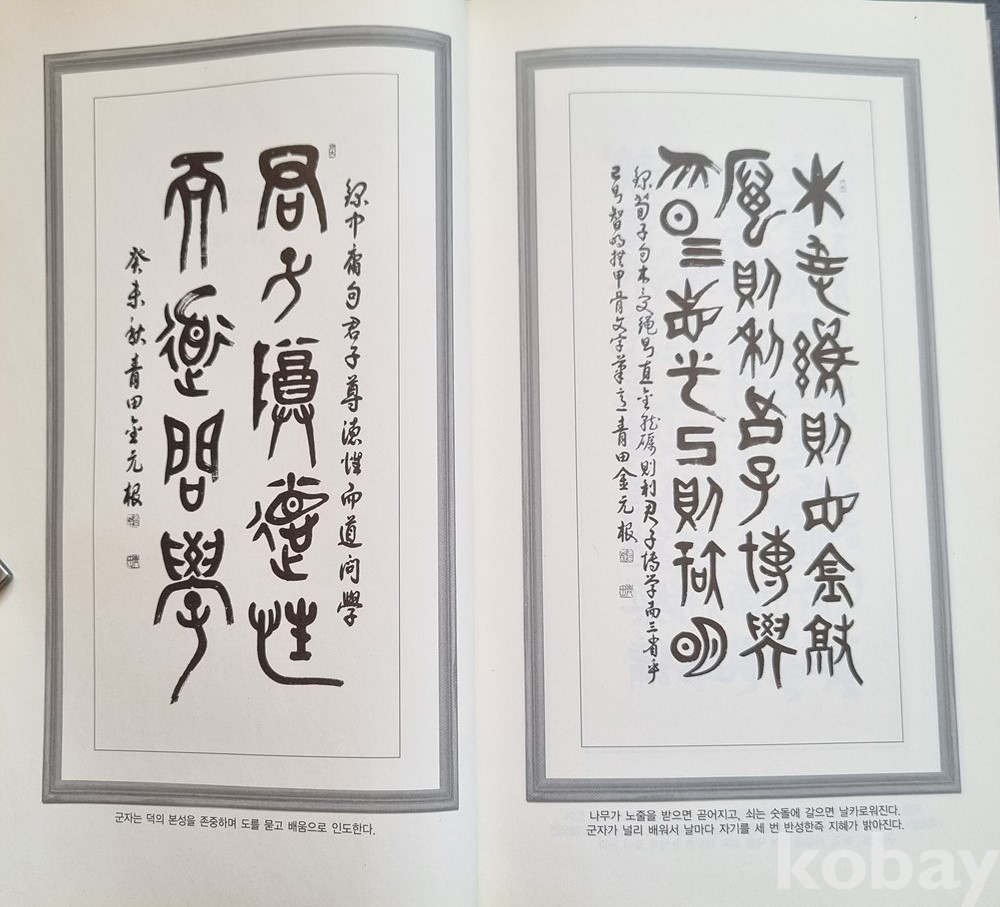 錄中庸句君子尊德性而道問學
君子尊德性
而道問學
癸未秋青田金元根
군자는 덕의 본성을 존중하며 도를 묻고 배움으로 인도한다.
木受繩則直金就
礪則利君子博學
而日三省乎己則智明
錄荀子句木受繩則直金就礪則利君子博學而三省乎
己則智明甲骨文字筆意青田金元根
나무가 노줄을 받으면 곧어지고, 쇠는 숫돌에 갈으면 날카로워진다.
군자가 널리 배워서 날마다 자기를 세 번 반성한즉 지혜가 밝아진다.
kobay